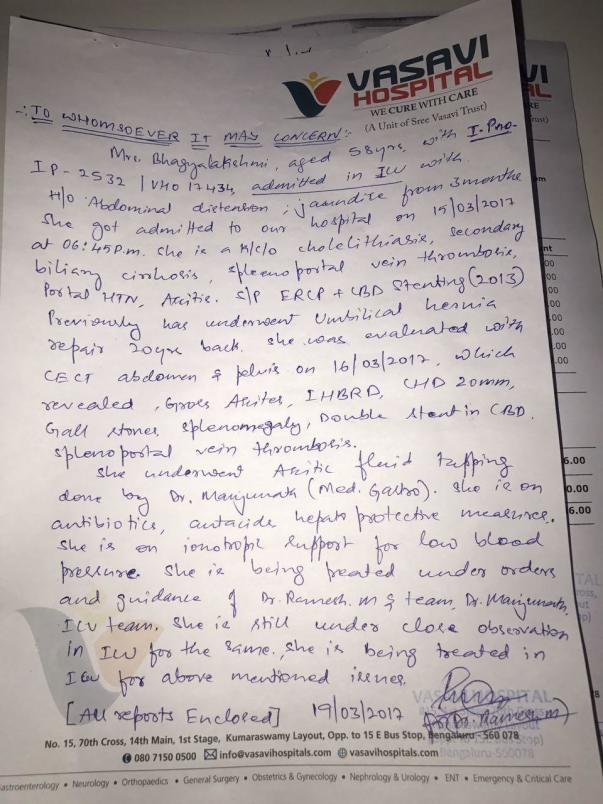 VASAVI
HOSPITAL
WE CURE WITH CARE
(A Unit of Sree Vasavi Trust)
-: TO WHOMSOEVER IT MAY CONCERN:-
Mrs. Bhagyalakshmi, aged 58yrs. with I.P no-
IP-2532 / VHO 17434, admitted in ICU with
H/O Abdominal distension, jaundice from 3 months
She got admitted to our hospital on 15/03/2017
at 06:45 P.m. She is a K/c/o cholelithiasis, Secondary
biliary cirrhosis, spleenoportal vein thrombosis,
Portal HTN, Ascitis. S/P ERCP + CBD Stenting (2013)
Previously has underwent Umbilical hernia
repair 20yrs back. she was evaluated with
CECT abdomen & pelvis on 16/03/2017, which
revealed, Gross Ascites, IHBRD, CHD 20mm,
Gall stones, splenomegaly, Double stent in CBD.
Splenoportal vein thrombosis.
She underwent Ascitic fluid tapping
done by Dr. Manjunath (Med. Gastro). She is on
antibiotics, antacids hepato protective measures.
She is on ionotropic support for low blood
pressure. She is being treated under orders
and guidance of Dr. Ramesh. M & team, Dr. Manjunath,
ICU team. She is still under close observation
in ICU for the same. She is being treated in
ICU for above mentioned issues.
[All reports Enclosed] 19/03/2017 (Dr. Ramesh. M)
VASAVI HOSPITAL
No. 15, 70th Cross, 14th Main, 1st Stage, Kumaraswamy Layout, Opp. to 15 E Bus Stop, Bengaluru - 560 078
080 7150 0500 info@vasavihospitals.com vasavihospitals.com
Bengaluru-560078
Gastroenterology • Neurology • Orthopaedics • General Surgery • Obstetrics & Gynecology • Nephrology & Urology • ENT • Emergency & Critical Care
6.00
0.00
6.00